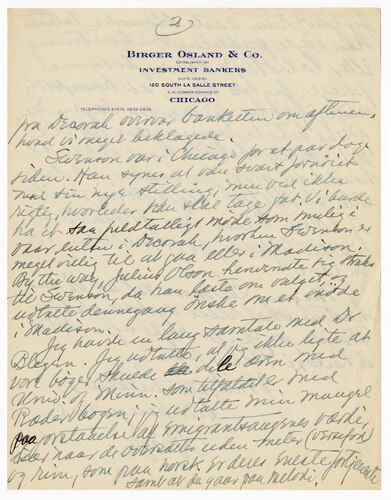 2
BIRGER OSLAND & CO.
ESTABLISHED 1911
INVESTMENT BANKERS
120 SOUTH LA SALLE STREET
CHICAGO
fra Decorah overvar banketten om aftenen,
hvad vi meget beklagede.
Swenson var i Chicago for et par dage
siden. Han synes at være svært fornøiet
med sin nye stilling, men ved ikke
rigtig, hvorledes han skal tage fat. Vi burde
ha et saa fuldtalligt møde som mulig i
vaar, enten i Decorah, hvorhen Swenson er
meget villig til at gaa eller i Madison.
By the way, Julius Olson henvendte sig straks
til Swenson, da han læste om valget, og
udtalte dennegang ønske om et møde
i Madison.
Jeg havde en lang samtale med Dr
Blegen. Jeg udtalte, at jeg ikke ligte at
vore bøger skulde dele æren med
Univ. of Minn. som tilfældet er med
Ræder bogen; jeg udtalte min mangel
paa forstaaelse af Emigrantsangenes værdi,
naar de oversættes uden meter (versefod)
og rim, som paa norsk er deres eneste fortjeneste
samt at de gaar paa melodi.